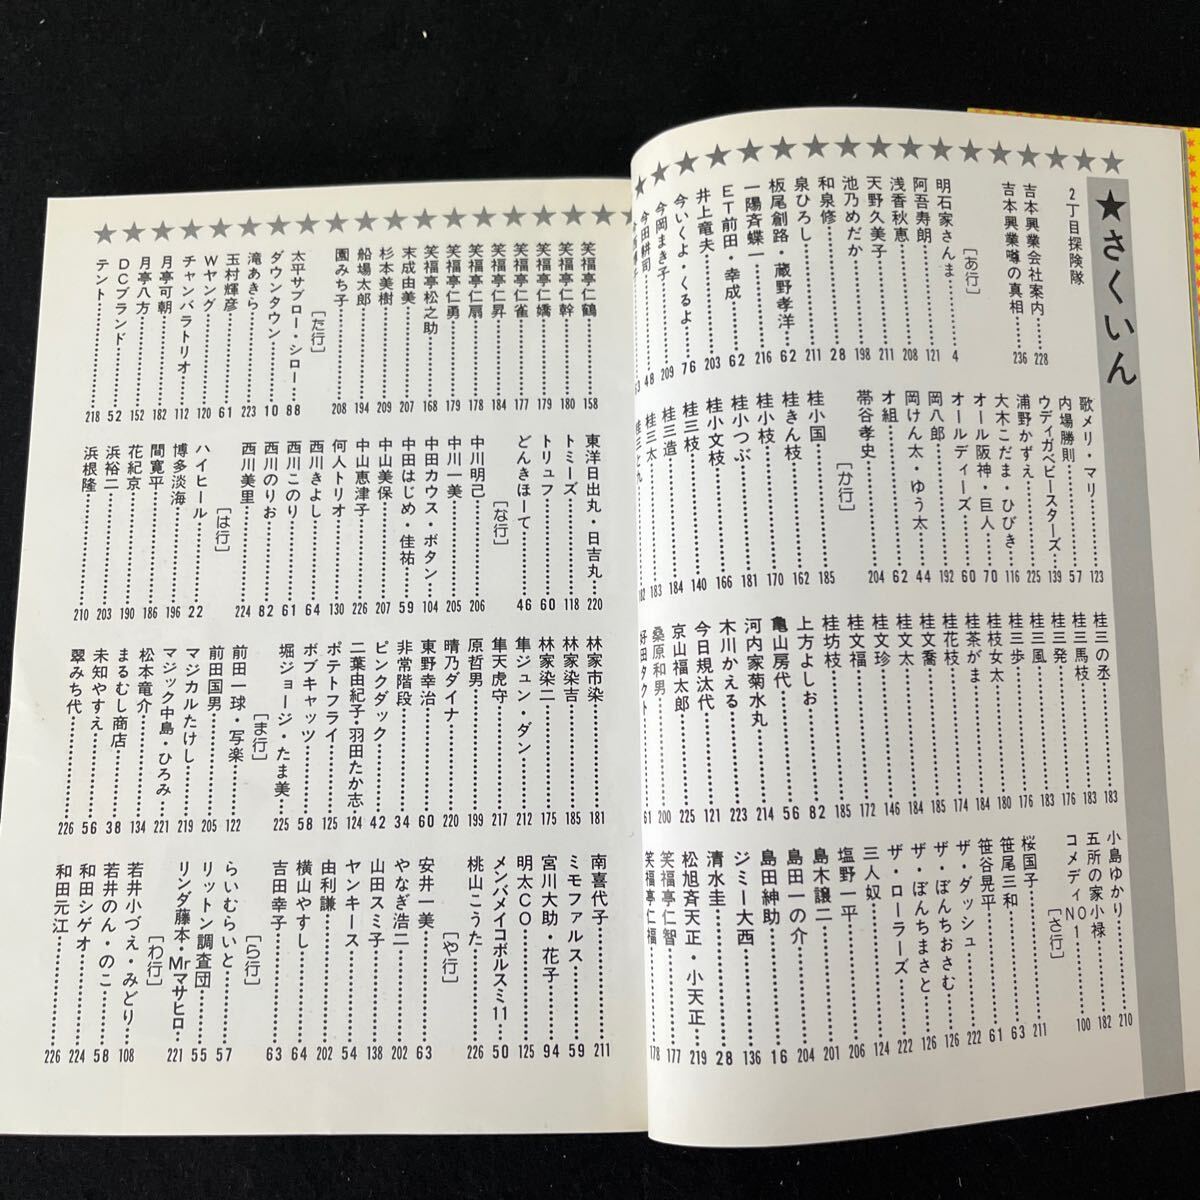 ★さくいん
2丁目探険隊
吉本興業会社案内……228
吉本興業噂の真相……236
[あ行]
明石家さんま……4
阿吾寿朗……121
浅香秋恵……208
天野久美子……211
池乃めだか……198
和泉修……28
泉ひろし……211
板尾創路・蔵野孝洋……62
一陽斉蝶一……216
ET前田・幸成……62
井上竜夫……203
今いくよ・くるよ……76
今岡まき子……209
今田耕司……48
歌メリ・マリ……123
内場勝則……57
ウディガベビースターズ……139
浦野かずえ……225
大木こだま・ひびき……116
オール阪神・巨人……70
オールディーズ……60
岡八郎……192
岡けん太・ゆう太……44
オ組……62
帯谷孝史……204
[か行]
桂小国……185
桂きん枝……162
桂小枝……170
桂小つぶ……181
桂小文枝……166
桂三枝……140
桂三造……184
桂三太……183
桂三の丞……183
桂三馬枝……176
桂三発……183
桂三風……183
桂三歩……176
桂枝女太……180
桂茶がま……184
桂花枝……174
桂文喬……185
桂文太……184
桂文珍……146
桂文福……172
桂坊枝……185
上方よしお……82
亀山房代……56
河内家菊水丸……214
木川かえる……223
今日規汰代……121
京山福太郎……225
桑原和男……200
好田タクト……61
小島ゆかり……210
五所の家小禄……182
コメディNO1……100
[さ行]
桜国子……211
笹尾三和……63
笹谷晃平……61
ザ・ダッシュ……222
ザ・ぼんちおさむ……126
ザ・ぼんちまさと……126
ザ・ローラーズ……222
三人奴……124
塩野一平……206
島木譲二……201
島田一の介……204
島田紳助……16
ジミー大西……136
清水圭……28
松旭斉天正・小天正……219
笑福亭仁智……177
笑福亭仁福……178
笑福亭仁鶴……158
笑福亭仁幹……180
笑福亭仁嬌……179
笑福亭仁雀……177
笑福亭仁昇……184
笑福亭仁扇……178
笑福亭仁勇……179
笑福亭松之助……168
末成由美……207
杉本美樹……209
船場太郎……194
園みち子……208
[た行]
太平サブロー・シロー……88
ダウンタウン……10
滝あきら……223
玉村輝彦……61
Wヤング……120
チャンバラトリオ……112
月亭可朝……182
月亭八方……152
DCブランド……52
テント……218
東洋日出丸・日吉丸……220
トミーズ……118
トリュフ……60
どんきほーて……46
[な行]
中川明己……206
中川一美……205
中田カウス・ボタン……104
中田はじめ・佳祐……59
中山美保……207
中山恵津子……226
何人トリオ……130
西川きよし……64
西川このり……61
西川のりお……82
西川美里……224
[は行]
ハイヒール……22
博多淡海……196
間寛平……186
花紀京……190
浜裕二……203
浜根隆……210
林家市染……181
林家染吉……185
林家染二……175
隼ジュン・ダン……212
隼天虎守……217
原哲男……199
晴乃ダイナ……220
東野幸治……60
非常階段……34
ピンクダック……42
二葉由紀子・羽田たか志……124
ポテトフライ……125
ボブキャッツ……58
堀ジョージ・たま美……225
[ま行]
前田一球・写楽……122
前田国男……205
マジカルたけし……219
マジック中島・ひろみ……221
松本竜介……134
まるむし商店……38
未知やすえ……56
翠みち代……226
南喜代子……211
ミモファルス……59
宮川大助・花子……94
明太CO……125
メンバメイコボルスミ11……50
桃山こうた……226
[や行]
安井一美……63
やなぎ浩二……202
山田スミ子……138
ヤンキース……54
由利謙……202
横山やすし……64
吉田幸子……63
[ら行]
らいむらいと……57
リットン調査団……55
リンダ藤本・Mrマサヒロ……221
[わ行]
若井小づえ・みどり……108
若井のん・のこ……58
和田シゲオ……224
和田元江……226